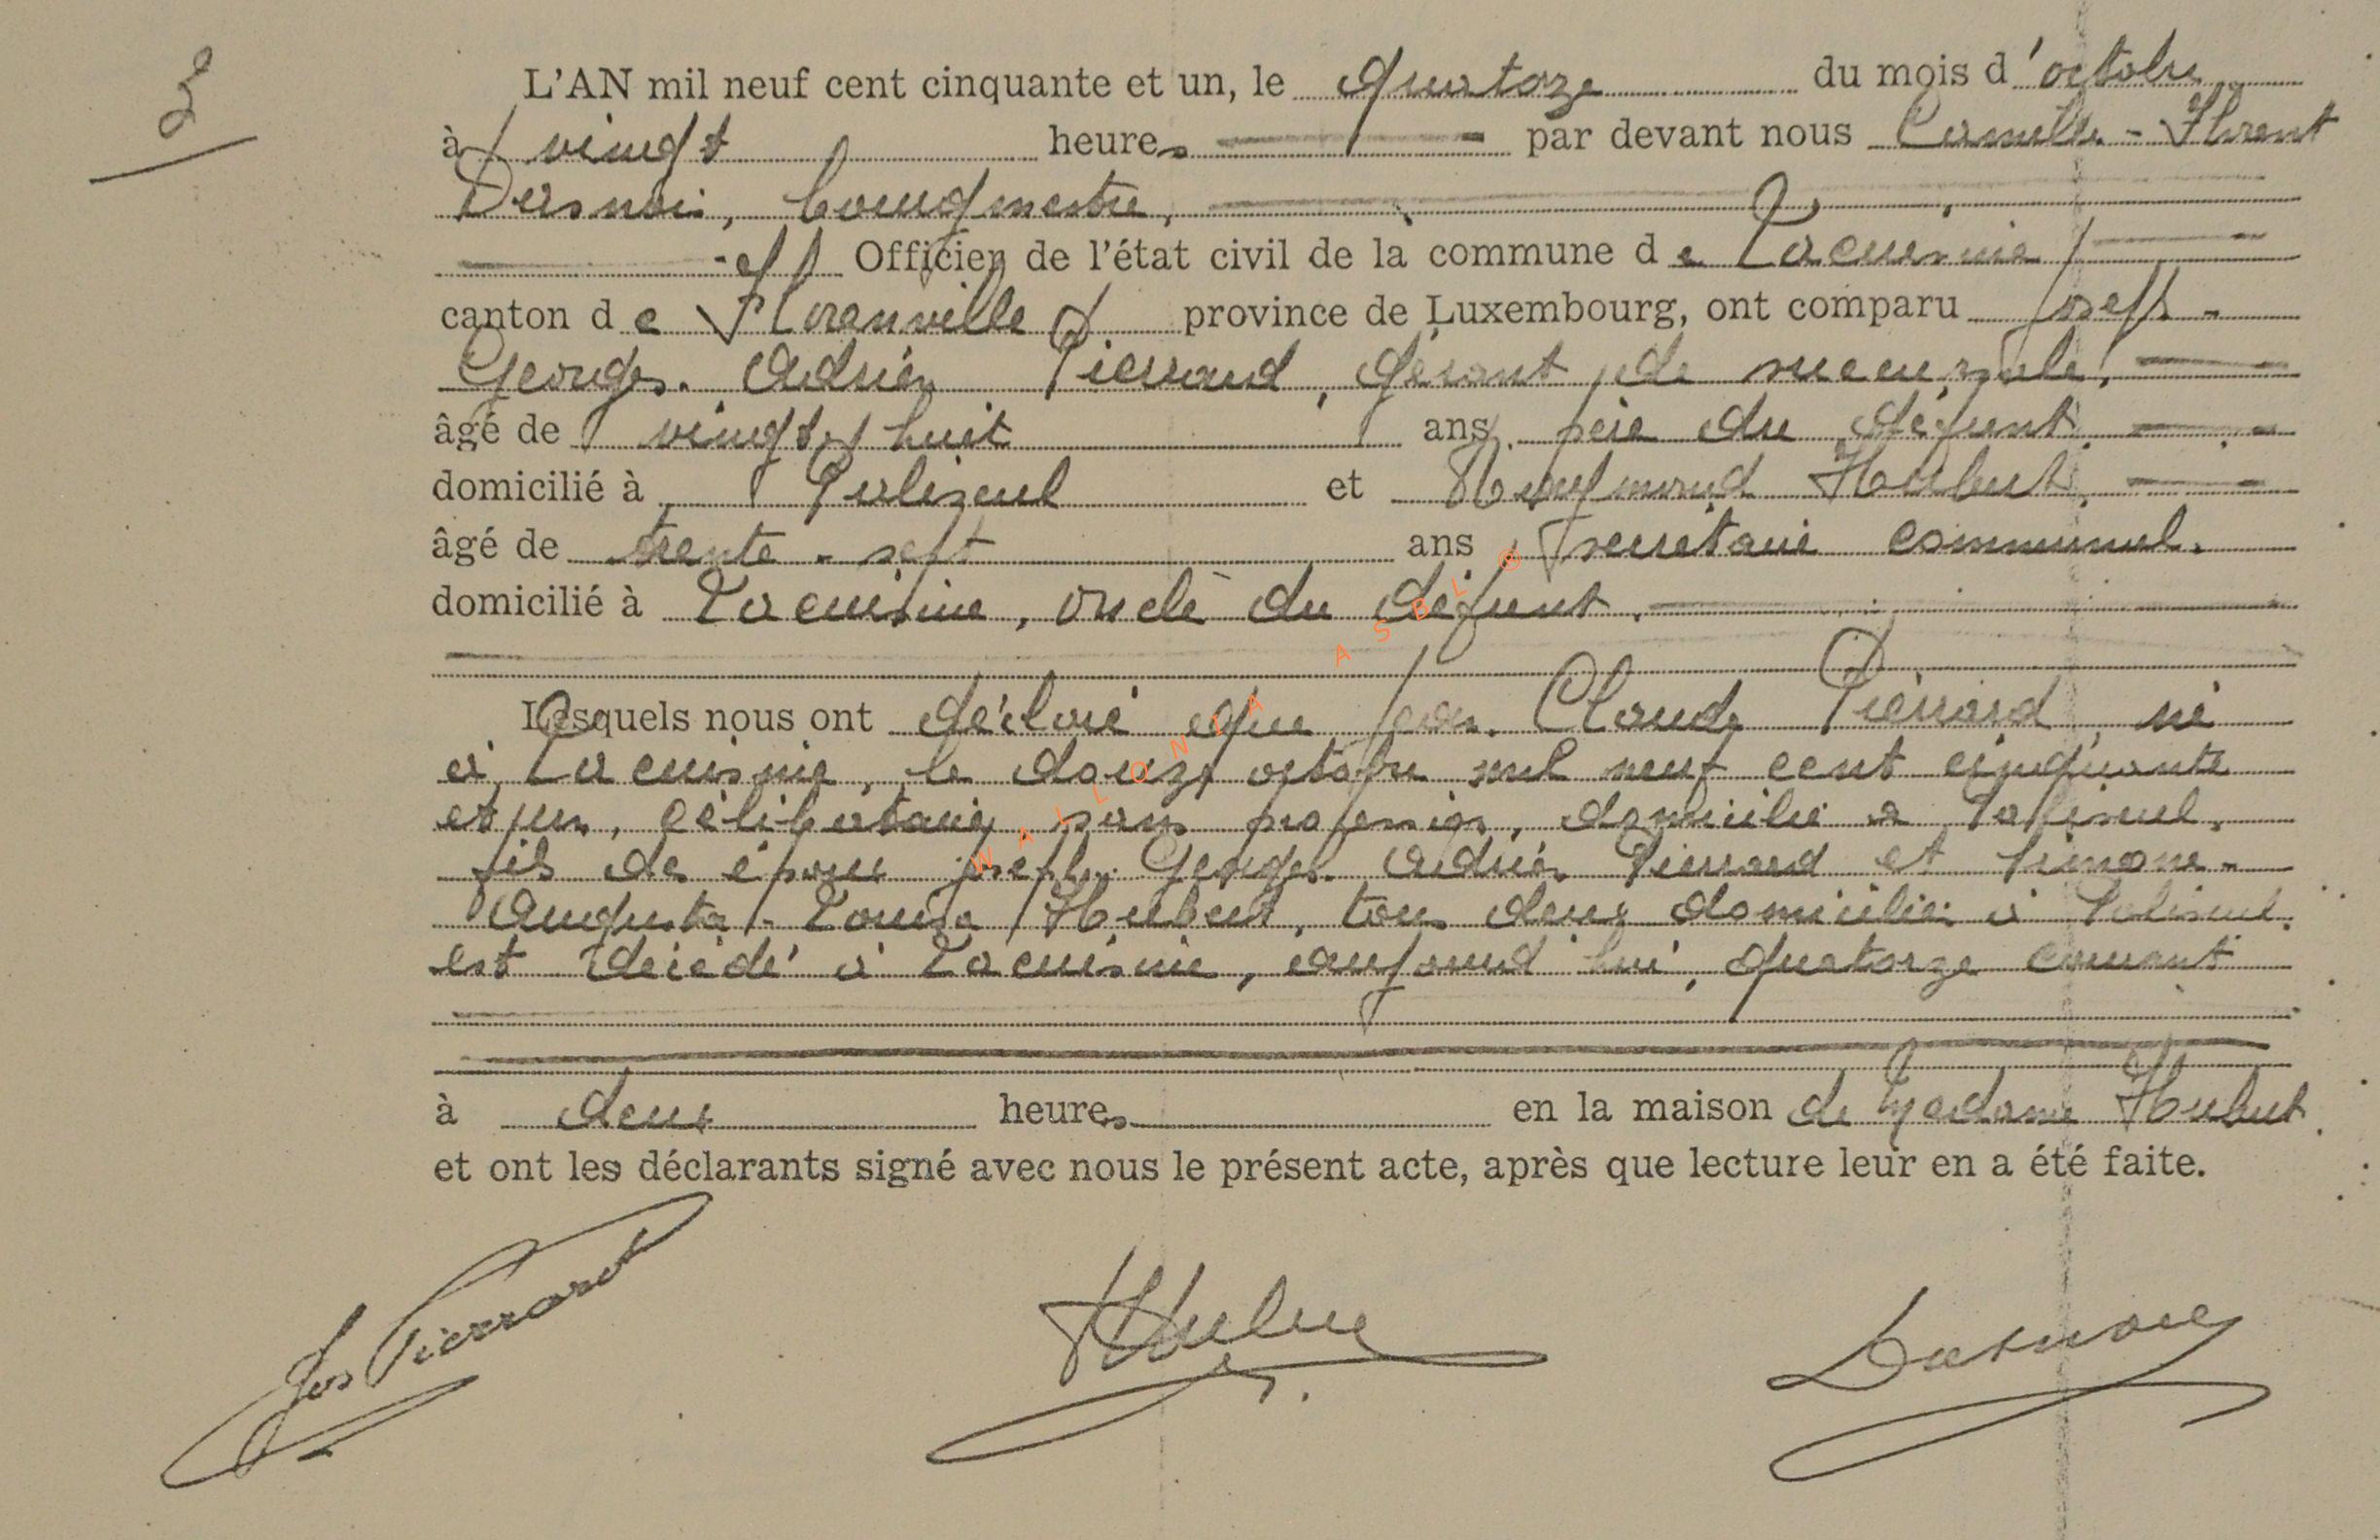 2
L'AN mil neuf cent cinquante et un, le quatorze du mois d'octobre
à vingt heures par devant nous Camille - Florent
bourgmestre,
Officier de l'état civil de la commune de Lacuisine
canton de Florenville province de Luxembourg, ont comparu Joseph -
Georges - Adrien Pierrard, gérant de succursale,
âgé de vingt-huit ans, père du défunt,
domicilié à Paliseul et Raymond Hubert,
âgé de trente - sept ans, secrétaire communal,
domicilié à Lacuisine, oncle du défunt.
Lesquels nous ont déclaré que Jean - Claude Pierrard, né
à Lacuisine, le douze octobre mil neuf cent cinquante
et un, célibataire, sans profession, domicilié à Paliseul,
fils de époux Joseph - Georges - Adrien Pierrard et Simone -
Augusta - Louisa Hubert, tous deux domiciliés à Paliseul,
est décédé à Lacuisine, aujourd'hui, quatorze courant
à deux heures en la maison de Madame Hubert
et ont les déclarants signé avec nous le présent acte, après que lecture leur en a été faite.
Jos Pierrard
WALLONIA ASBL ©